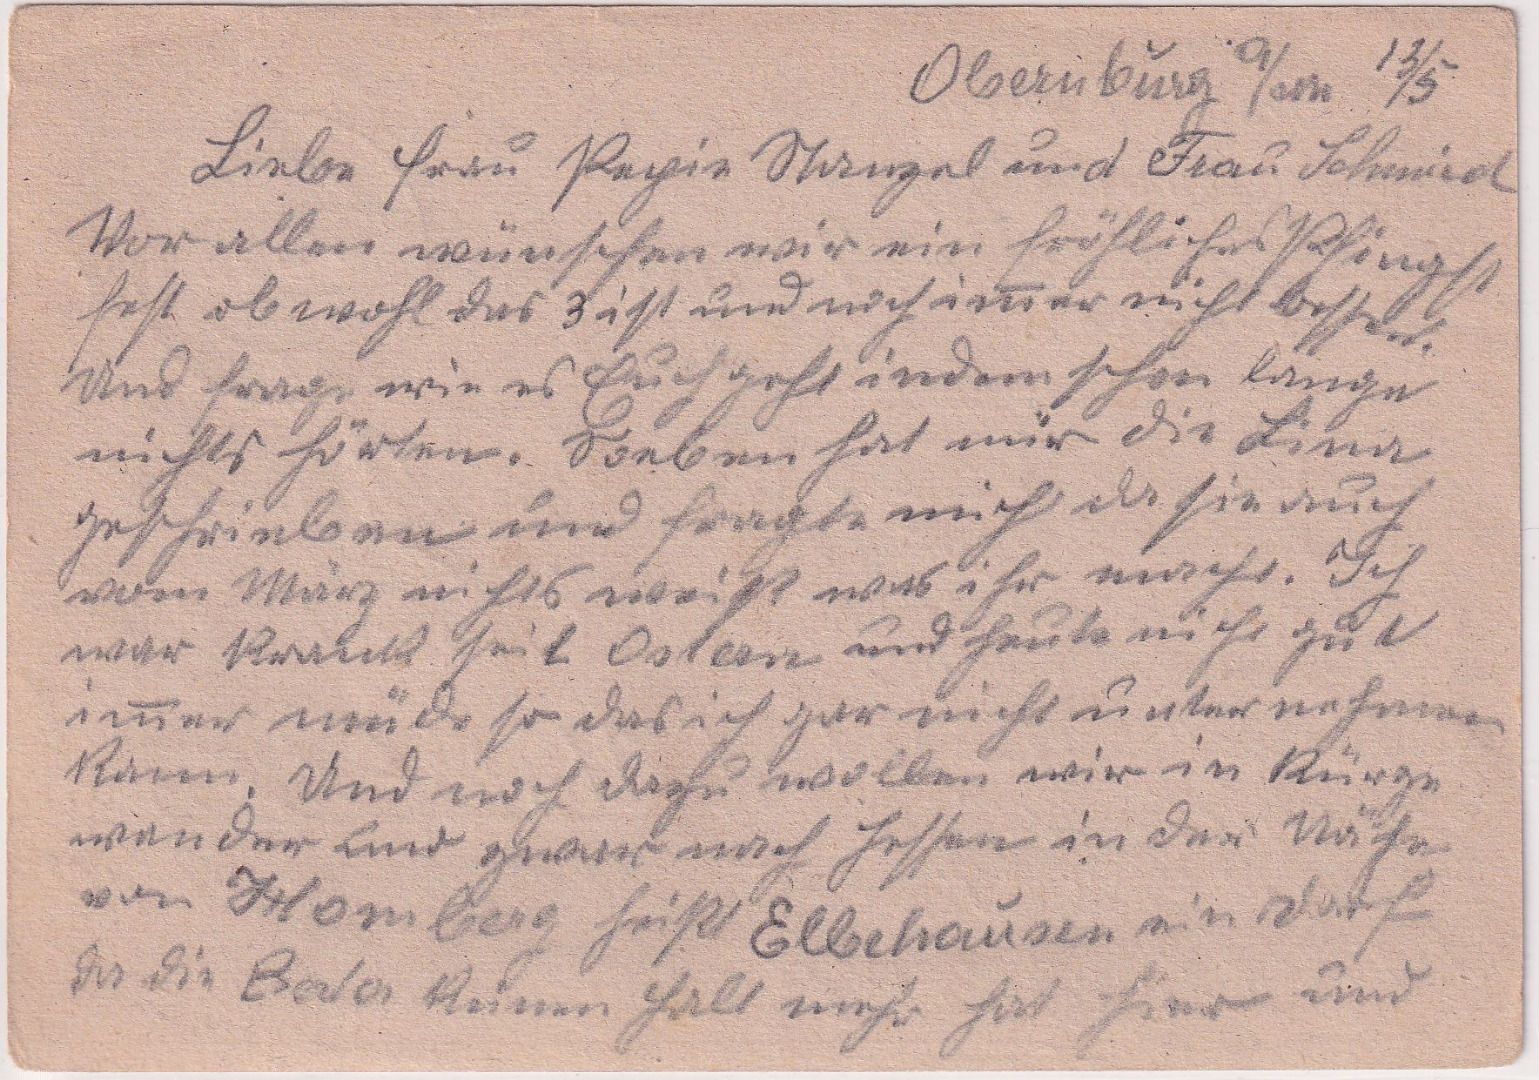 Obernburg a/m 13/5
Liebe Frau Pepie Stanzel und Frau Schmied
Vor allen wünschen wir ein fröhliches Pfingst
fest obwohl das 3 ist und noch immer nicht besser.
Und frage wie es Euch geht indem schon lange
nichts hörten. Soeben hat mir die Lina
geschrieben und fragte mich da sie auch
vom März nichts weißt was ihr macht. Ich
war krank seit Ostern und heute nicht gut
immer müde so das ich gar nicht unternehmen
kann. Und noch dazu wollen wir in Kürze
wandern und zwar nach Hessen in der Nähe
von Homberg heißt Elbehausen ein Dorf
da die keinen halt mehr hat hier und